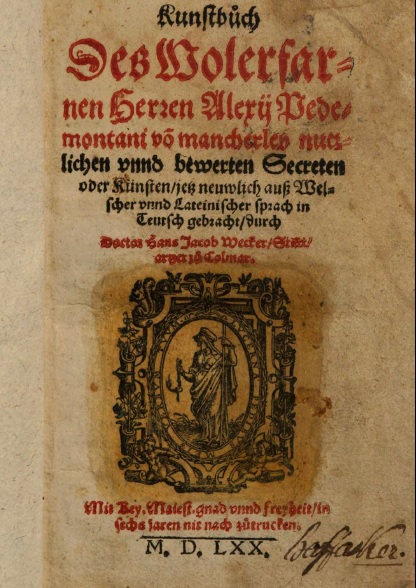 Kunstbůch
Des Wolerfar⸗
nen Herren Alexij Pede⸗
montani võ mancherley nutz⸗
lichen vnnd bewerten Secreten
oder Künsten/jetz neuwlich auß Wel⸗
scher vnnd Lateinischer sprach in
Teutsch gebracht/durch
Doctor Hans Jacob Wecker/Statt⸗
artzet zů Colmar.
Mit Key. Maiest. gnad vnnd freyheit/in
sechs jaren nit nach zůtrucken.
M. D. LXX.